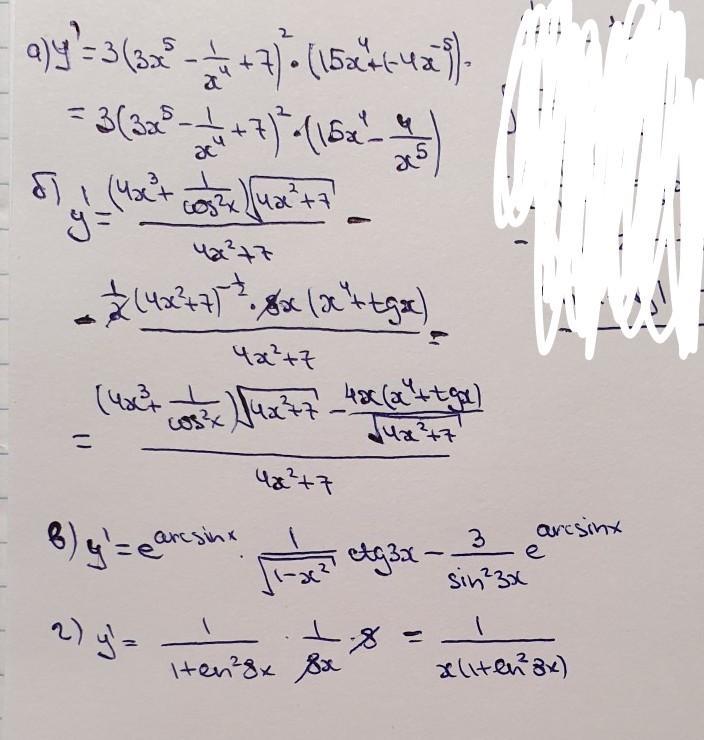 а) y' = 3(3x⁵ - 1/x⁴ + 7)² · (15x⁴ + (-4x⁻⁵)) =
= 3(3x⁵ - 1/x⁴ + 7)² · (15x⁴ - 4/x⁵)
б) y' = (4x³ + 1/cos²x)√(4x²+7) / (4x²+7) -
- 1/2 (4x²+7)^(-1/2) · 8x (x⁴ + tgx) / (4x²+7) =
= ((4x³ + 1/cos²x)√(4x²+7) - 4x(x⁴+tgx)/√(4x²+7)) / (4x²+7)
в) y' = e^(arcsinx) · 1/√(1-x²) ctg3x - 3/sin²3x e^(arcsinx)
г) y' = 1/(1+ln²8x) · 1/8x · 8 = 1/(x(1+ln²8x))